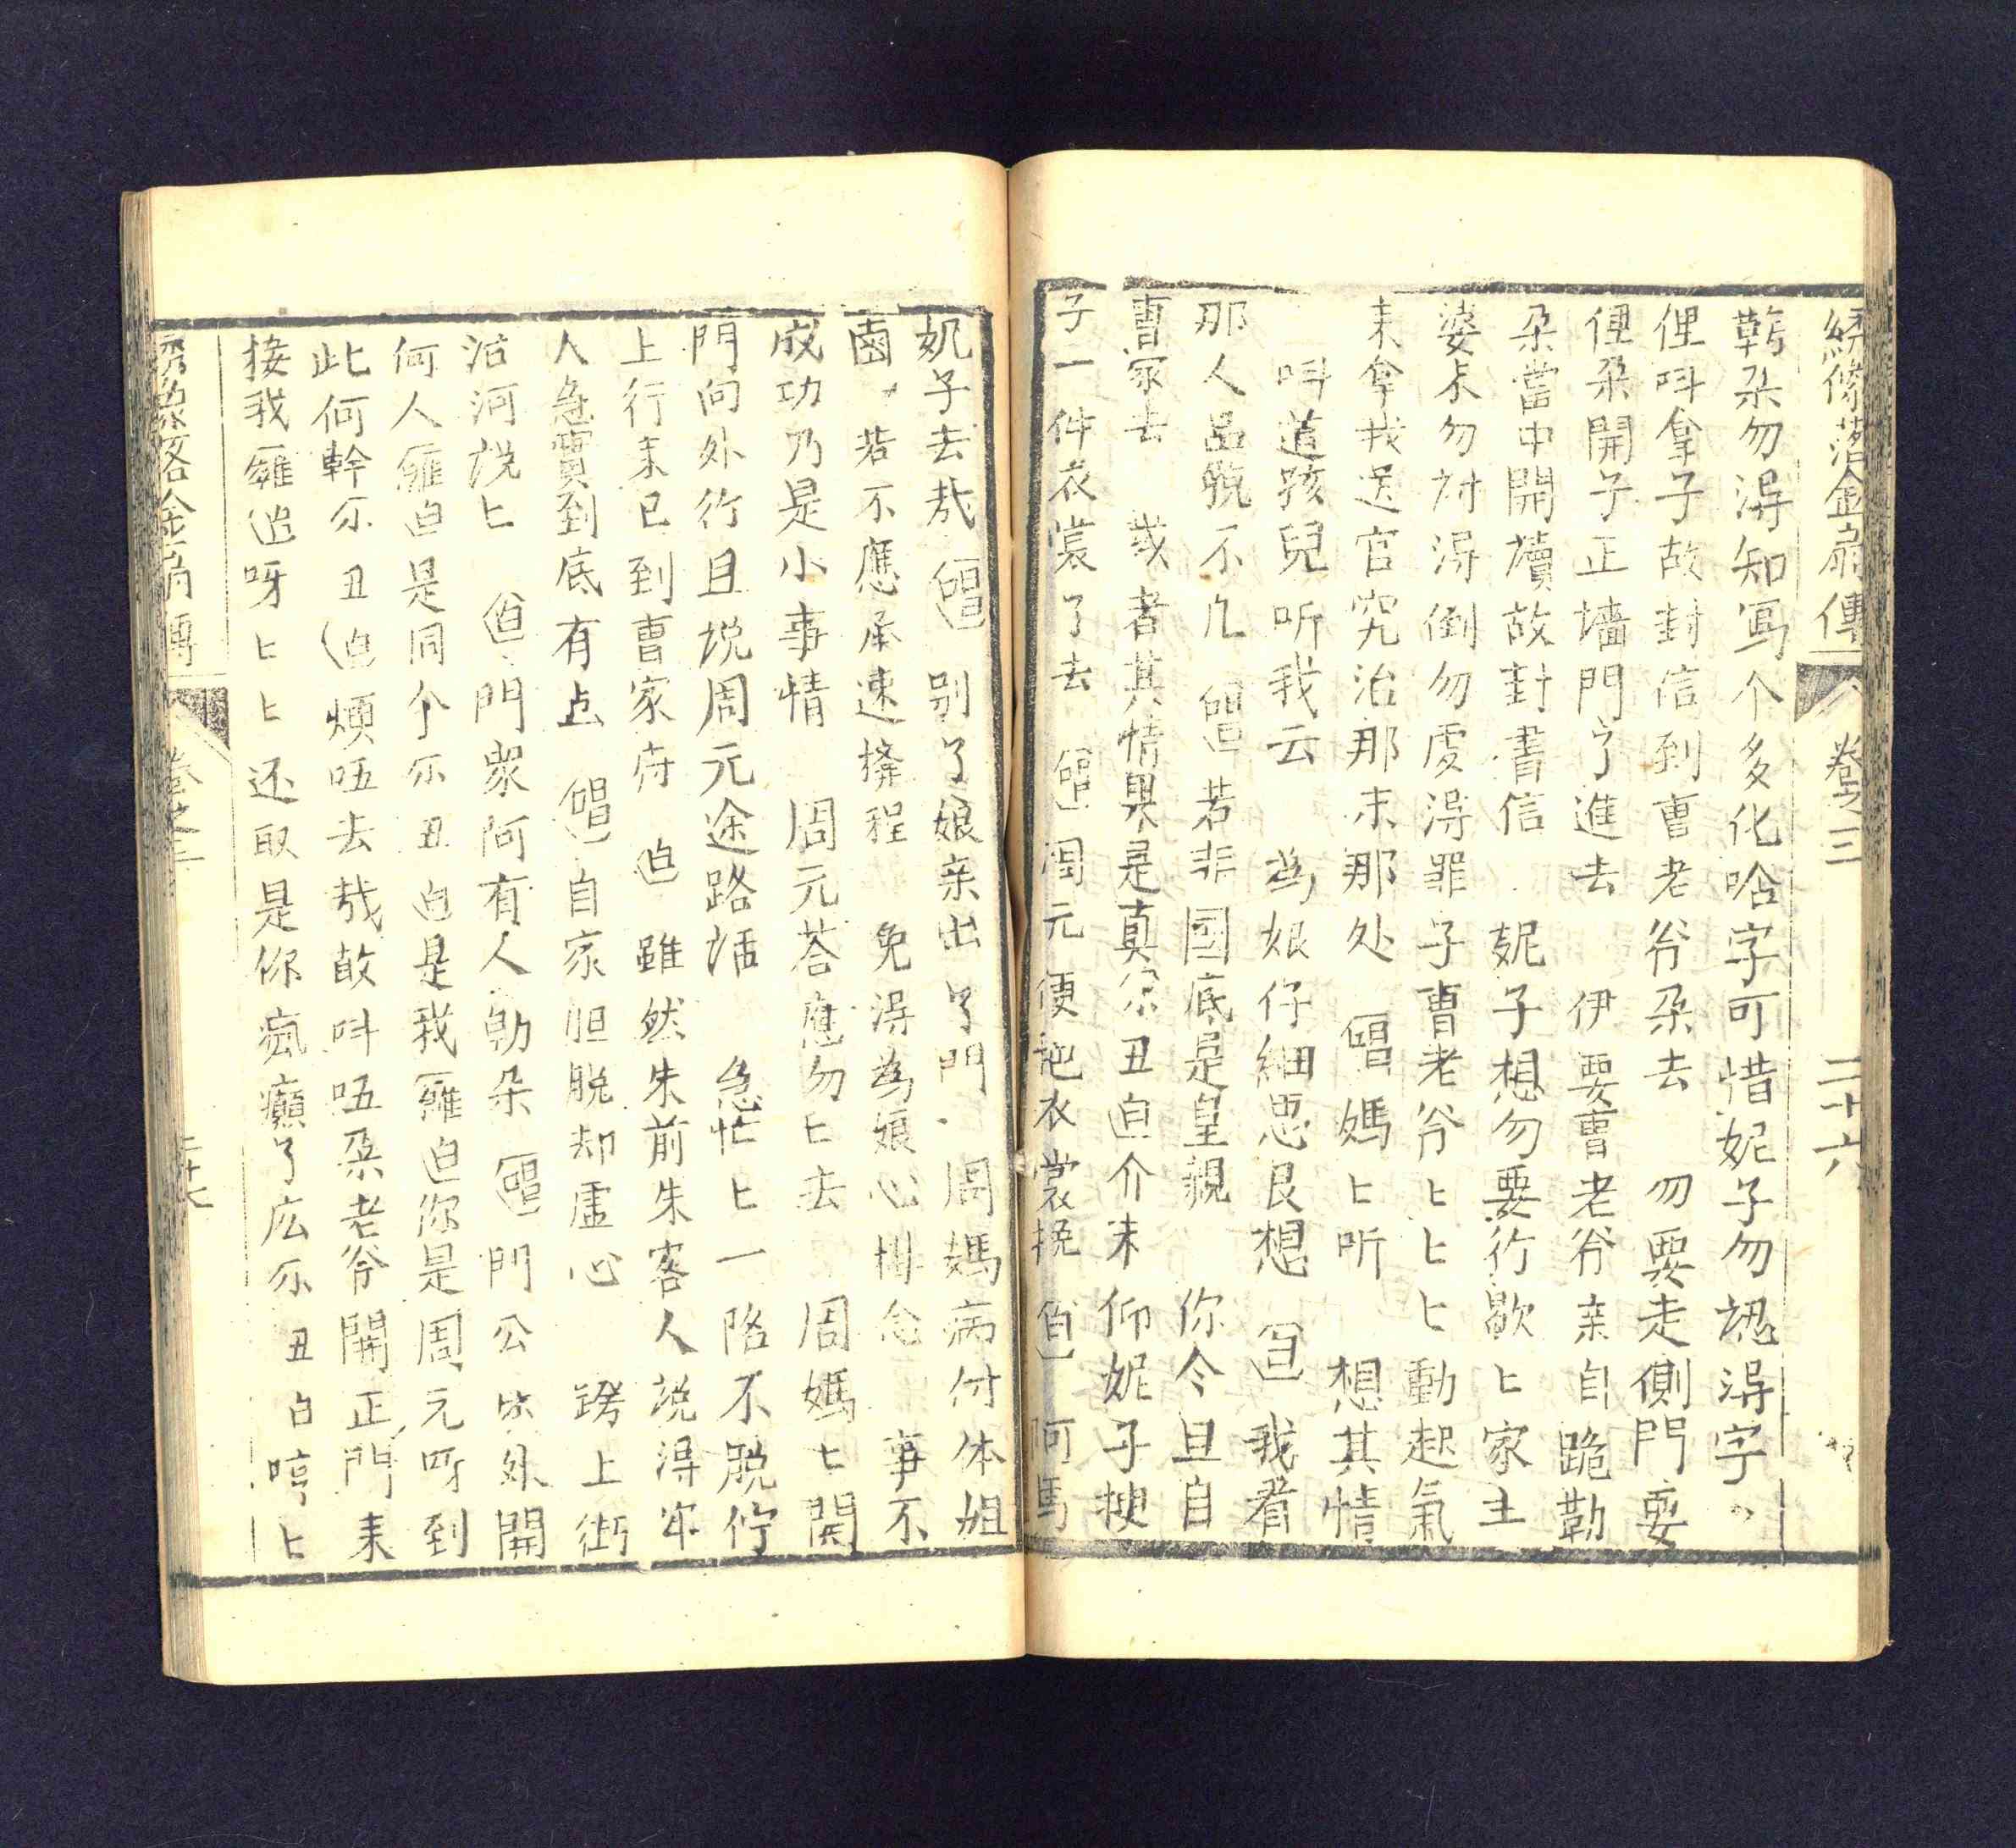 綉像落金扇傳 卷之三 二十六
朵勿淂知寫个多化啥字可惜妮子勿認淂字
俚呌拿子故封信到曹老爷朵去 勿要走側門要
俚朵開子正墙門了進去 伊要曹老爷亲自跪勒
朵當中開讀故封書信 妮子想勿要行歇匕家主
婆末勿討淂倒勿要淂罪子曹老爷匕匕匕動起氣
来拿我送官究治那末那処 唱媽匕听 想其情
呌道孩兒听我云 為娘仔細思良想 白 我看
那人品貌不凡 唱 若非國底是皇親 你今且自
曹家去 或者其情果是真 丑白介末仰妮子換
子一件衣裳了去 唱 周元便把衣裳換 白 阿媽
妮子去哉 唱 别了娘亲出了門 周媽病付体姐
鹵 若不應承速擠程 免淂為娘心掛念 事不
成功乃是小事情 周元荅應勿匕去 周媽匕関
門向外行且説周元途路話 急忙匕一路不脱停
上行来已到曹家府 白 雖然朱前朱客人説淂牢
人急實到底有点 唱 自家胆脱却虚心 跨上街
沿河説匕 白 門衆阿有人勒朵 唱 門公出外開
何人 白是同个 丑白是我 白你是周元呀到
此何幹 丑白煩吾去哉敢呌吾朵老爷開正門来
接我 白呀匕匕还取是你瘋癲了広 丑白哼匕
卷之三 二十七